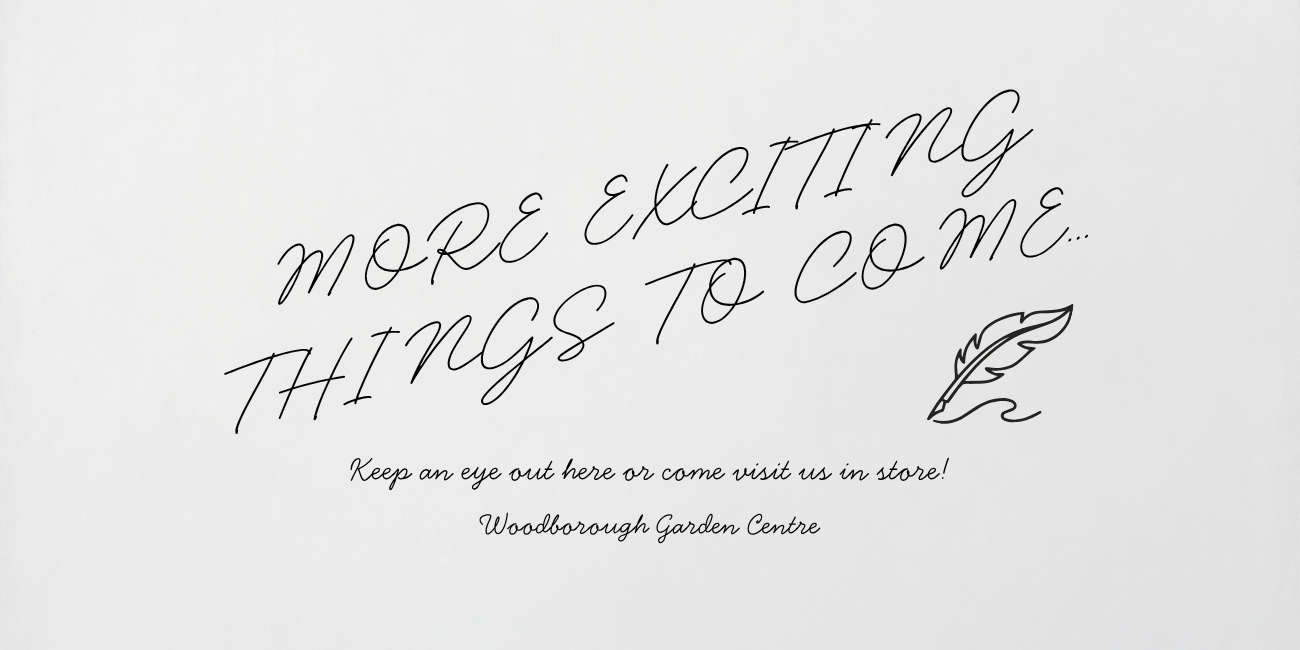 MORE EXCITING
THINGS TO COME...
Keep an eye out here or come visit us in store!
Woodborough Garden Centre